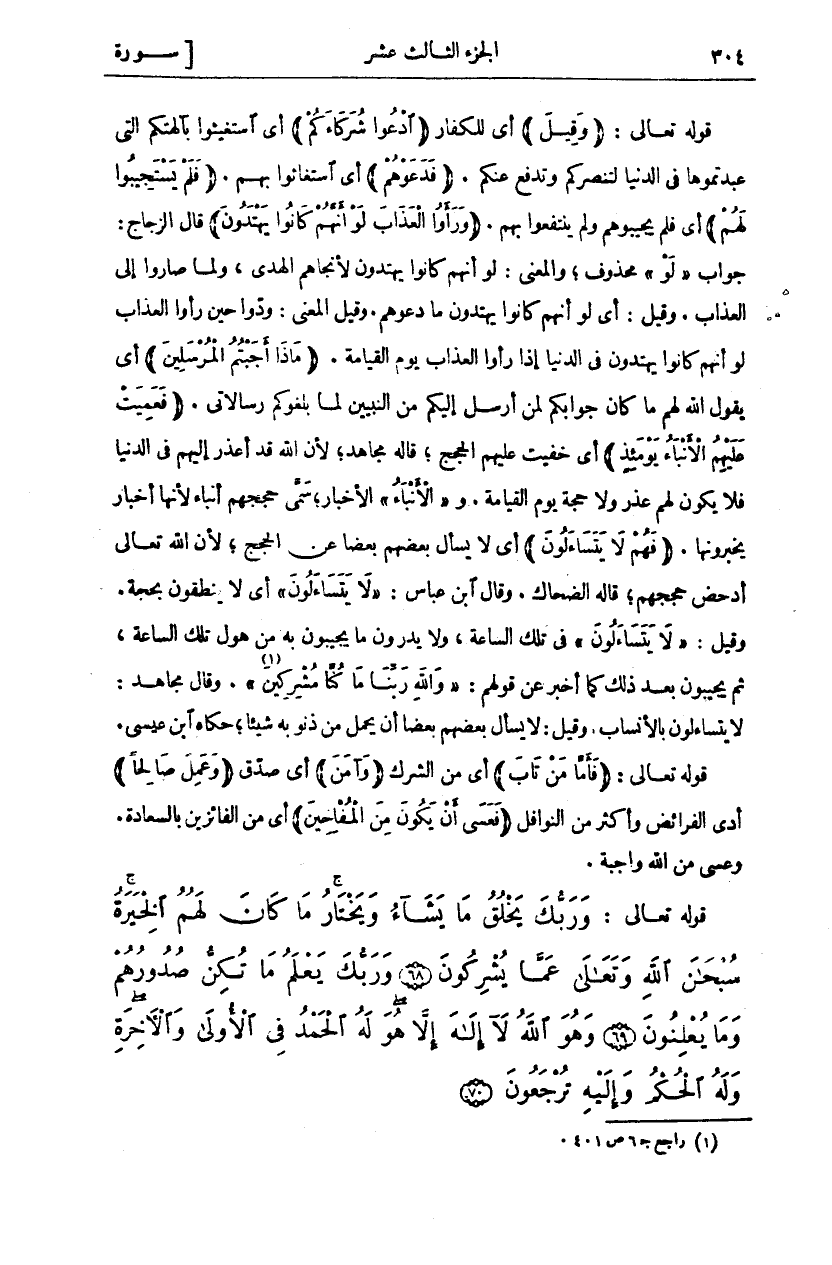 ٣٠٤ الجزء الثالث عشر [ ســـورة
قوله تعـالى : ﴿ وَقِيـلَ ﴾ أى للكفار ﴿ ٱدْعُوا شُرَكَاءَكُمْ ﴾ أى ٱستغيثوا بآلهتكم التى
عبدتموها فى الدنيا لتنصركم وتدفع عنكم . ﴿ فَدَعَوْهُمْ ﴾ أى ٱستغاثوا بهـم . ﴿ فَلَمْ يَسْتَجِيبُوا
لَهُمْ ﴾ أى فلم يجيبوهم ولم ينتفعوا بهم . ﴿ وَرَأَوُا الْعَذَابَ لَوْ أَنَّهُمْ كَانُوا يَهْتَدُونَ ﴾ قال الزجاج :
جواب « لَوْ » محذوف ؛ والمعنى : لو أنهم كانوا يهتدون لأنجاهم الهدى ، ولمـا صاروا إلى
العذاب . وقيل : أى لو أنهم كانوا يهتدون ما دعوهم . وقيل المعنى : ودّوا حين رأوا العذاب
لو أنهم كانوا يهتدون فى الدنيا إذا رأوا العذاب يوم القيامة . ﴿ مَاذَا أَجَبْتُمُ الْمُرْسَلِينَ ﴾ أى
يقول الله لهم ما كان جوابكم لمن أرسـل إليكم من النبيين لمـا بلغوكم رسالاتى . ﴿ فَعَمِيَتْ
عَلَيْهِمُ الْأَنْبَاءُ يَوْمَئِذٍ ﴾ أى خفيت عليهم الحجج ؛ قاله مجاهد؛ لأن الله قد أعذر إليهم فى الدنيا
فلا يكون لهم عذر ولا حجة يوم القيامة . و « الْأَنْبَاءُ » الأخبار؛ سَمَّى حججهم أنباء لأنها أخبار
يخبرونها . ﴿ فَهُمْ لَا يَتَسَاءَلُونَ ﴾ أى لا يسأل بعضهم بعضا عن الحجج ؛ لأن الله تعـالى
أدحض حججهم؛ قاله الضحاك . وقال ٱبن عباس : «لَا يَتَسَاءَلُونَ» أى لا ينطقون بحجة .
وقيل : « لَا يَتَسَاءَلُونَ » فى تلك الساعة ، ولا يدرون ما يجيبون به من هول تلك الساعة ،
ثم يجيبون بعـد ذلك كما أخبر عن قولهم : « وَاللهِ رَبِّنَـا مَا كُنَّا مُشْرِكِينَ (١) » . وقال مجاهـد :
لا يتساءلون بالأنساب . وقيل : لا يسأل بعضهم بعضا أن يحمل من ذنوبه شيئا ؛ حكاه ٱبن عيسى .
قوله تعـالى : ﴿ فَأَمَّا مَنْ تَابَ ﴾ أى من الشرك ﴿ وَآمَنَ ﴾ أى صدّق ﴿ وَعَمِلَ صَالِحًا ﴾
أدى الفرائض وأكثر من النوافل ﴿ فَعَسَى أَنْ يَكُونَ مِنَ الْمُفْلِحِينَ ﴾ أى من الفائزين بالسعادة .
وعسى من الله واجبة .
قوله تعـالى : وَرَبُّكَ يَخْلُقُ مَا يَشَآءُ وَيَخْتَارُ ۚ مَا كَانَ لَهُمُ ٱلْخِيَرَةُ ۚ
سُبْحَـٰنَ ٱللَّهِ وَتَعَـٰلَىٰ عَمَّـا يُشْرِكُونَ ﴿٦٨﴾ وَرَبُّكَ يَعْلَمُ مَا تُكِنُّ صُدُورُهُمْ
وَمَا يُعْلِنُونَ ﴿٦٩﴾ وَهُوَ ٱللَّهُ لَآ إِلَـٰهَ إِلَّا هُوَ ۖ لَهُ ٱلْحَمْدُ فِى ٱلْأُولَىٰ وَٱلْـَٔاخِرَةِ ۖ
وَلَهُ ٱلْحُكْمُ وَإِلَيْهِ تُرْجَعُونَ ﴿٧٠﴾
(١) راجع جـ ٦ ص ٤٠١ .